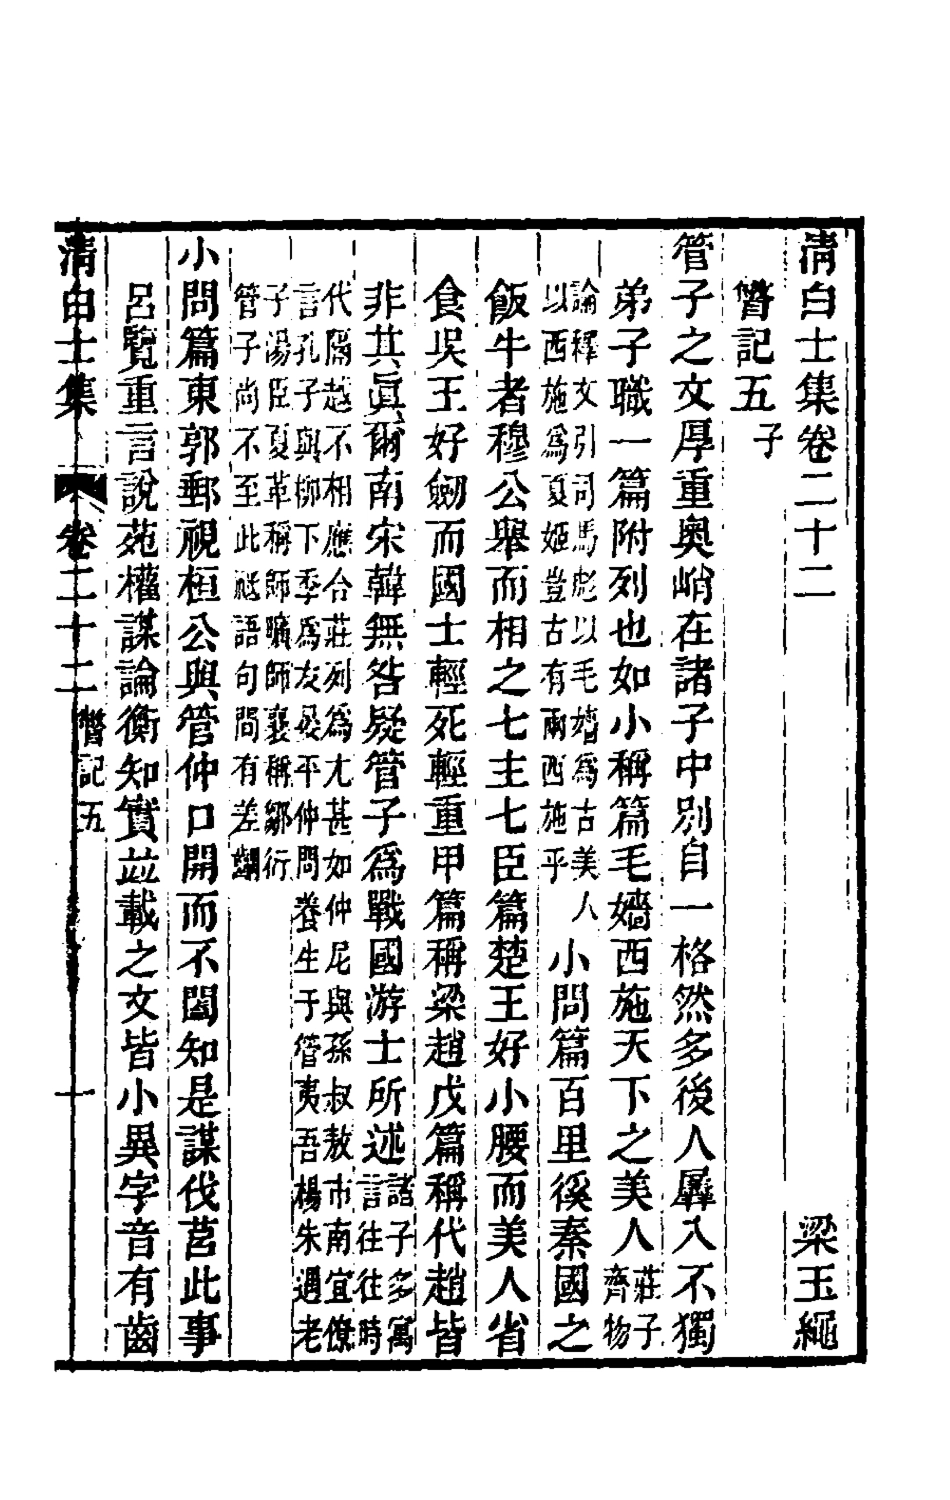 清白士集卷二十二 梁玉繩
瞥記五 子
管子之文厚重奧峭在諸子中別自一格然多後人羼入不獨
弟子職一篇附列也如小稱篇毛嬙西施天下之美人莊子
齊物
論釋文引司馬彪以毛嬙爲古美人
以西施爲夏姬豈古有兩西施乎
小問篇百里徯秦國之
飯牛者穆公舉而相之七主七臣篇楚王好小腰而美人省
食吳王好劒而國士輕死輕重甲篇稱梁趙戊篇稱代趙皆
非其眞爾南宋韓無咎疑管子爲戰國游士所述諸子多寓
言往往時
代隔越不相應合莊列爲尤甚如仲尼與孫叔敖市南宜僚
言孔子與柳下季爲友晏平仲問養生于管夷吾楊朱遇老
子湯臣夏革稱師曠師襄稱鄒衍
管子尚不至此祗語句間有差
小問篇東郭郵視桓公與管仲口開而不闔知是謀伐莒此事
呂覽重言說苑權謀論衡知實並載之文皆小異字音有齒
清白士集 卷二十二 瞥記五 一